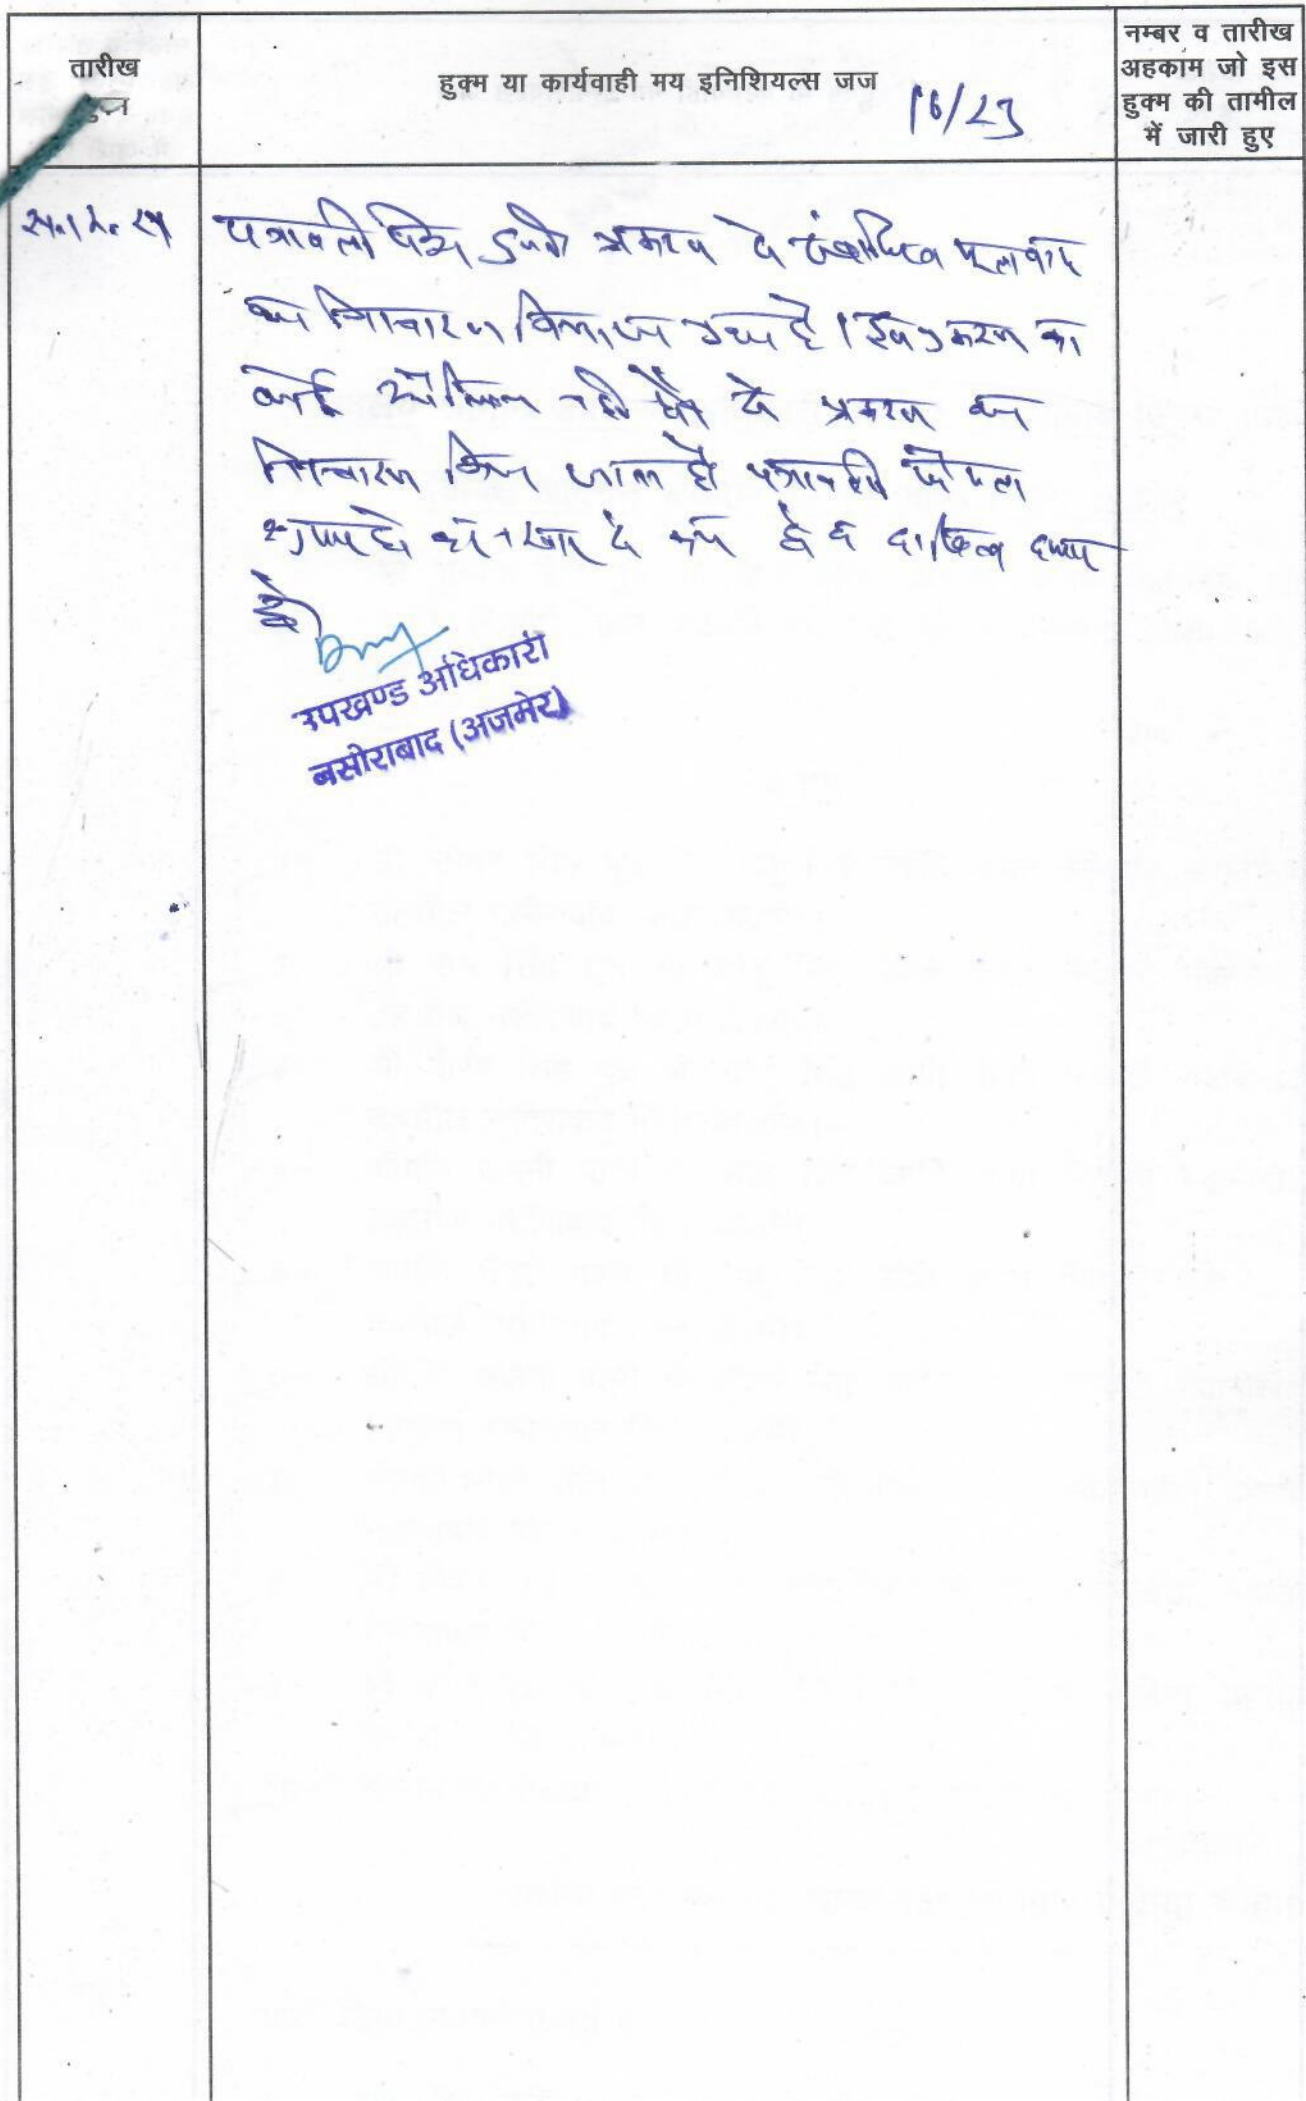 तारीख
हुक्म
हुक्म या कार्यवाही मय इनिशियल्स जज
16/23
नम्बर व तारीख
अहकाम जो इस
हुक्म की तामील
में जारी हुए
पत्रावली पेश हुयी प्रकरण से संबंधित मूलवाद
का निस्तारण किया जा चुका है। इस प्रकरण का
कोई औचित्य नहीं होने से प्रकरण का
निस्तारण किया जाता है पत्रावली फैसला
शुमार हो कर नम्बर से कम हो व दाखिल दफ्तर
हो
उपखण्ड अधिकारी
नसीराबाद (अजमेर)